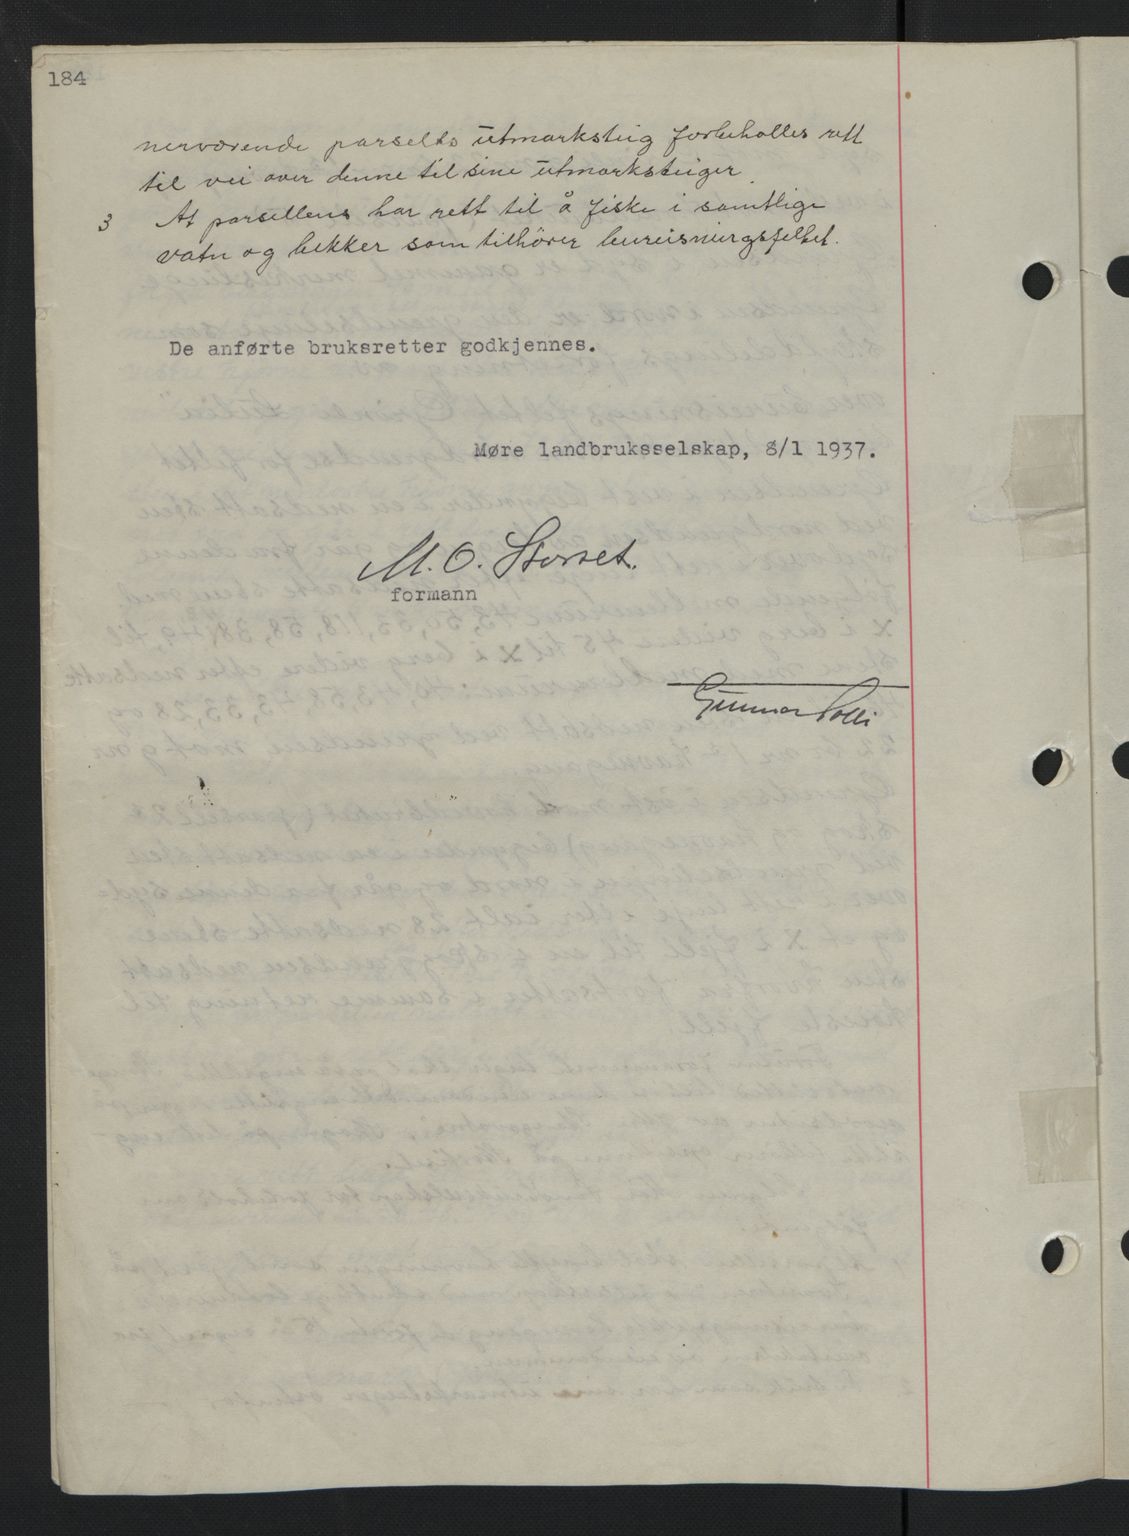 184
nerværende parsells utmarksteig forbeholles rett
til vei over denne til sine utmarksteiger
3 At parsellens har rett til å fiske i samtlige
vatn og bekker som tilhörer bureisningsfeltet.
De anførte bruksretter godkjennes.
Møre landbruksselskap, 8/1 1937.
M. O. Storset.
formann
Gunnar Solli